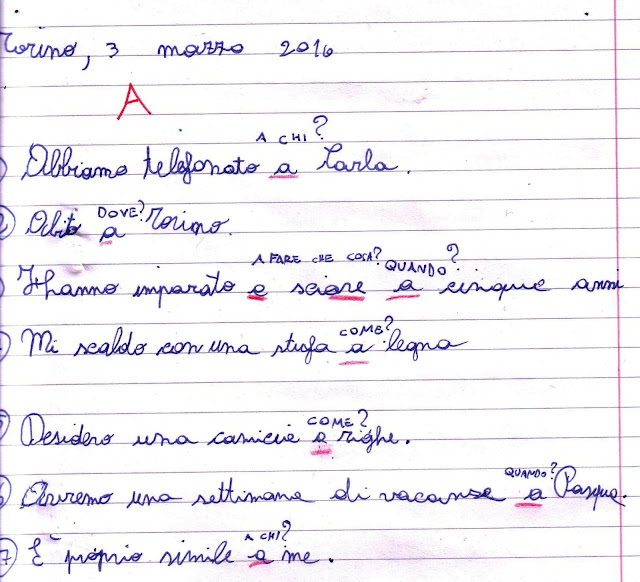 Torino, 3 marzo 2016
A
A CHI?
Abbiamo telefonato a Carla.
DOVE?
2) Abito a Torino.
A FARE CHE COSA? QUANDO?
Hanno imparato a sciare a cinque anni
COME?
Mi scaldo con una stufa a legna
COME?
Desidero una camicie a righe.
QUANDO?
6) Avremo una settimana di vacanze a Pasqua.
A CHI?
7) È proprio simile a me.